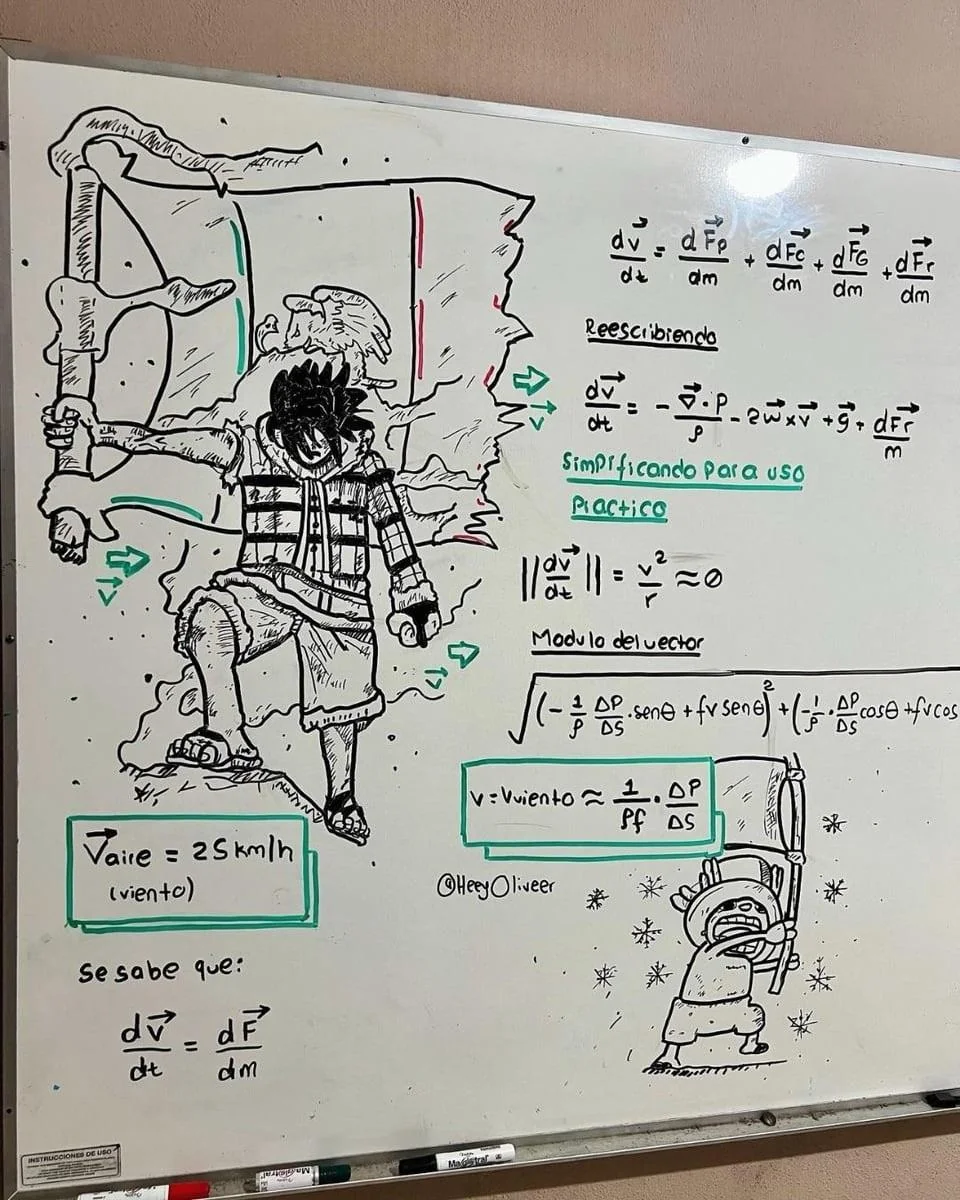 dv⃗/dt = dF⃗p/dm + dF⃗c/dm + dF⃗G/dm + dF⃗r/dm
Reescribiendo
dv⃗/dt = - ∇⃗·P/ρ - 2w⃗×v⃗ + g⃗ + dF⃗r/m
v⃗
Simplificando para uso
Practico
||dv⃗/dt|| = v²/r ≈ 0
v⃗
Modulo del vector
v⃗
√(- 1/ρ ΔP/ΔS · senθ + fv senθ)² + (- 1/ρ · ΔP/ΔS cosθ + fv cos
v = Vviento ≈ 1/ρf · ΔP/ΔS
V⃗aire = 25 km/h
(viento)
@HeeyOliveer
Se sabe que:
dv⃗/dt = dF⃗/dm
INSTRUCCIONES DE USO
Magistral
Magistral